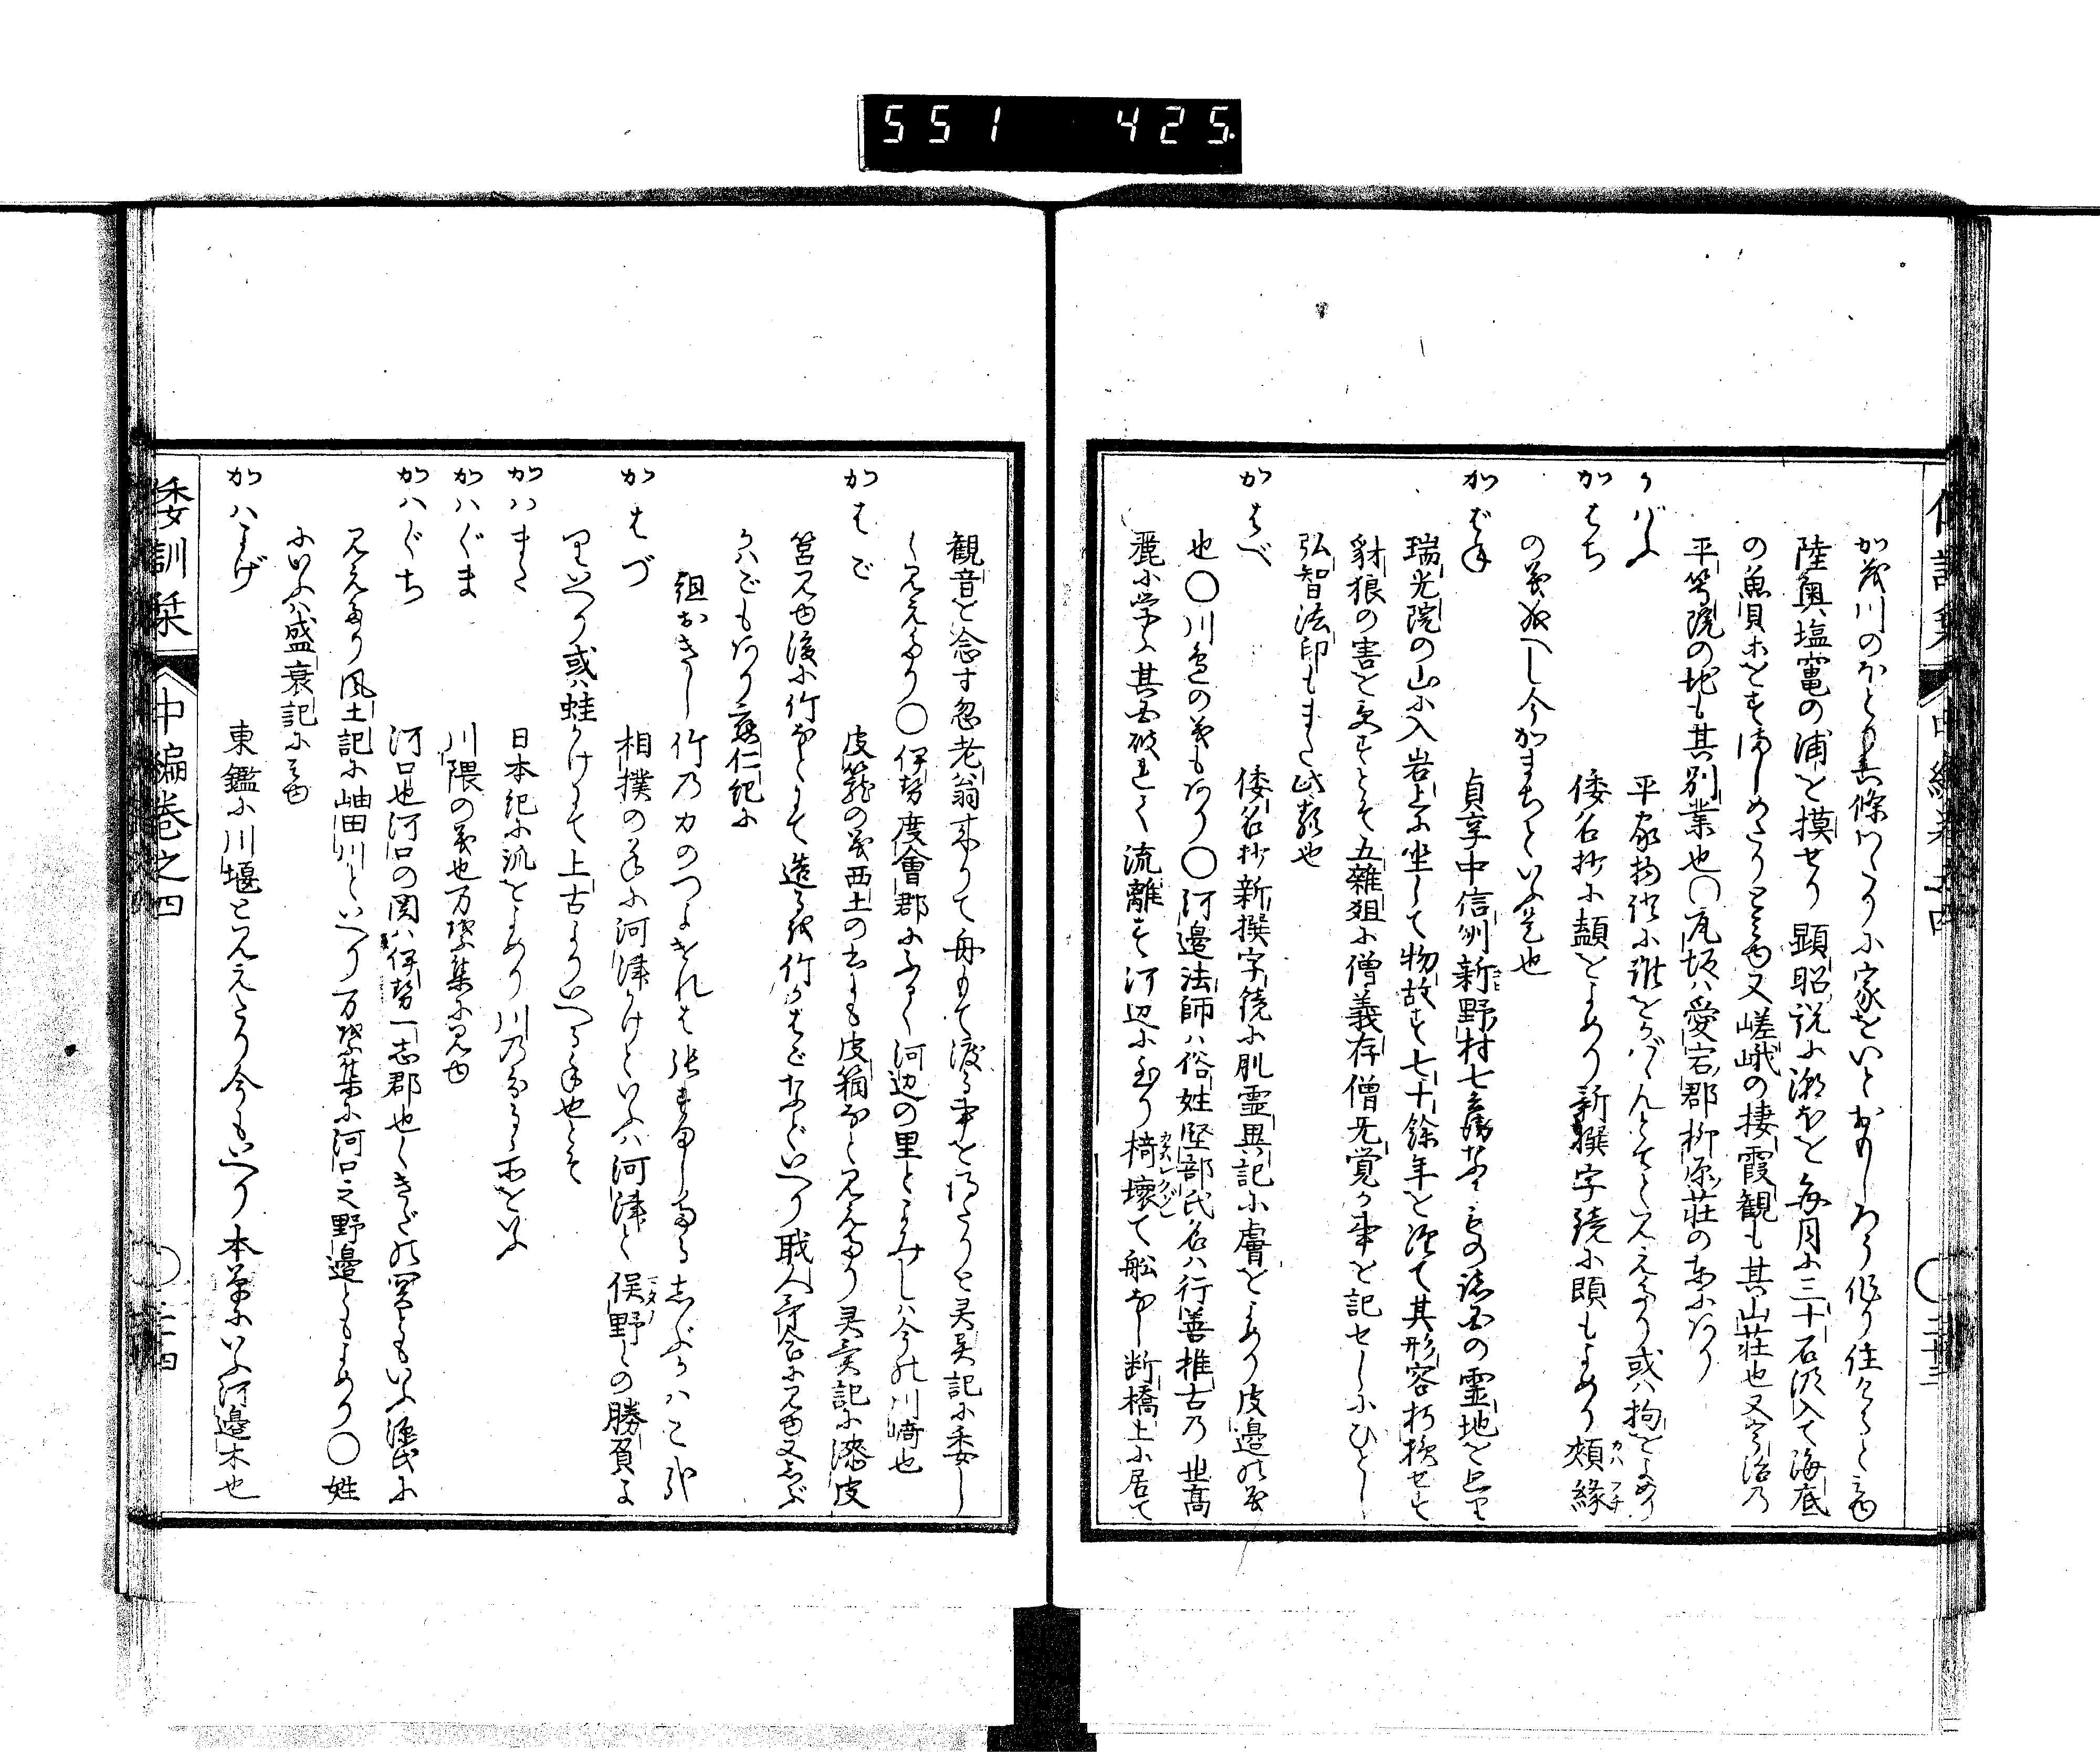 551 425
加茂川のほとり六條わたりに家をいとおもしろく作り住けるとみゆ
陸奥塩竈の浦を摸せり 顕昭説に潮水を毎月に三十石汲入て海底
の魚貝なとをすましめたりとみゆ又嵯峨の棲霞観も其山荘也又宇治の
平等院の地も其別業也○瓦坂ハ愛宕郡柳原荘の東にあり
かばふ 平家物語に誰をかばんとてとみえたり或ハ拘をよめり
かはち 倭名抄に䫌をよめり新撰字鏡に頤もよめり頬縁
の義成へし今かまちといふ是也
かばね 貞享中信州新野村七
瑞光院の山に入岩上に坐して物故す七十餘年を経て其形容朽損せす
豺狼の害を受すとそ五雜俎に僧義存僧无覚か事を記せしにひとし
弘智法印もまた此類也
かはべ 倭名抄新撰字鏡に肌霊異記に膚をよめり皮邉の義
也○川邉の義もあり○河邉法師ハ俗姓堅部氏名ハ行善推古の世高
麗に学ふ其国破れて流離す河辺に到り椅壞て舩なし断橋上に居て
倭訓栞 中編巻之四 ○二十三
観音を念す忽老翁来りて舟もて渡る事を得たりと灵異記に委し
く見えたり○伊勢度會郡にふるく河辺の里とよみしハ今の川﨑也
かはご 皮籠の義西土の書にも皮箱なと見えたり灵異記に漆皮
筥見ゆ後に竹なとして造るを竹かはごなといへり職人哥合に見ゆ又しぶ
かハごもあり應仁紀に
組おきし竹の力のつよけれは張すましたる志ぶかハこ哉
かはづ 相撲の手に河津かけといふハ河津と俣野との勝負よ
りいへり或ハ蛙かけにて上古よりいへる手也とそ
かハまた 日本紀に派をよめり川の分るゝ所をいふ
かハぐま 川隈の義也万葉集に見ゆ
かハぐち 河口也河口の関ハ伊勢一志郡也くきたの関ともいふ源氏に
見えたり風土記に岫田川といへり万葉集に河口之野邉ともよめり○姓
にいふハ盛衰記にみゆ
かハよけ 東鑑に川堰と見えたり今もいへり本草にいふ河邉木也
倭訓栞 中編巻之四 ○二十四